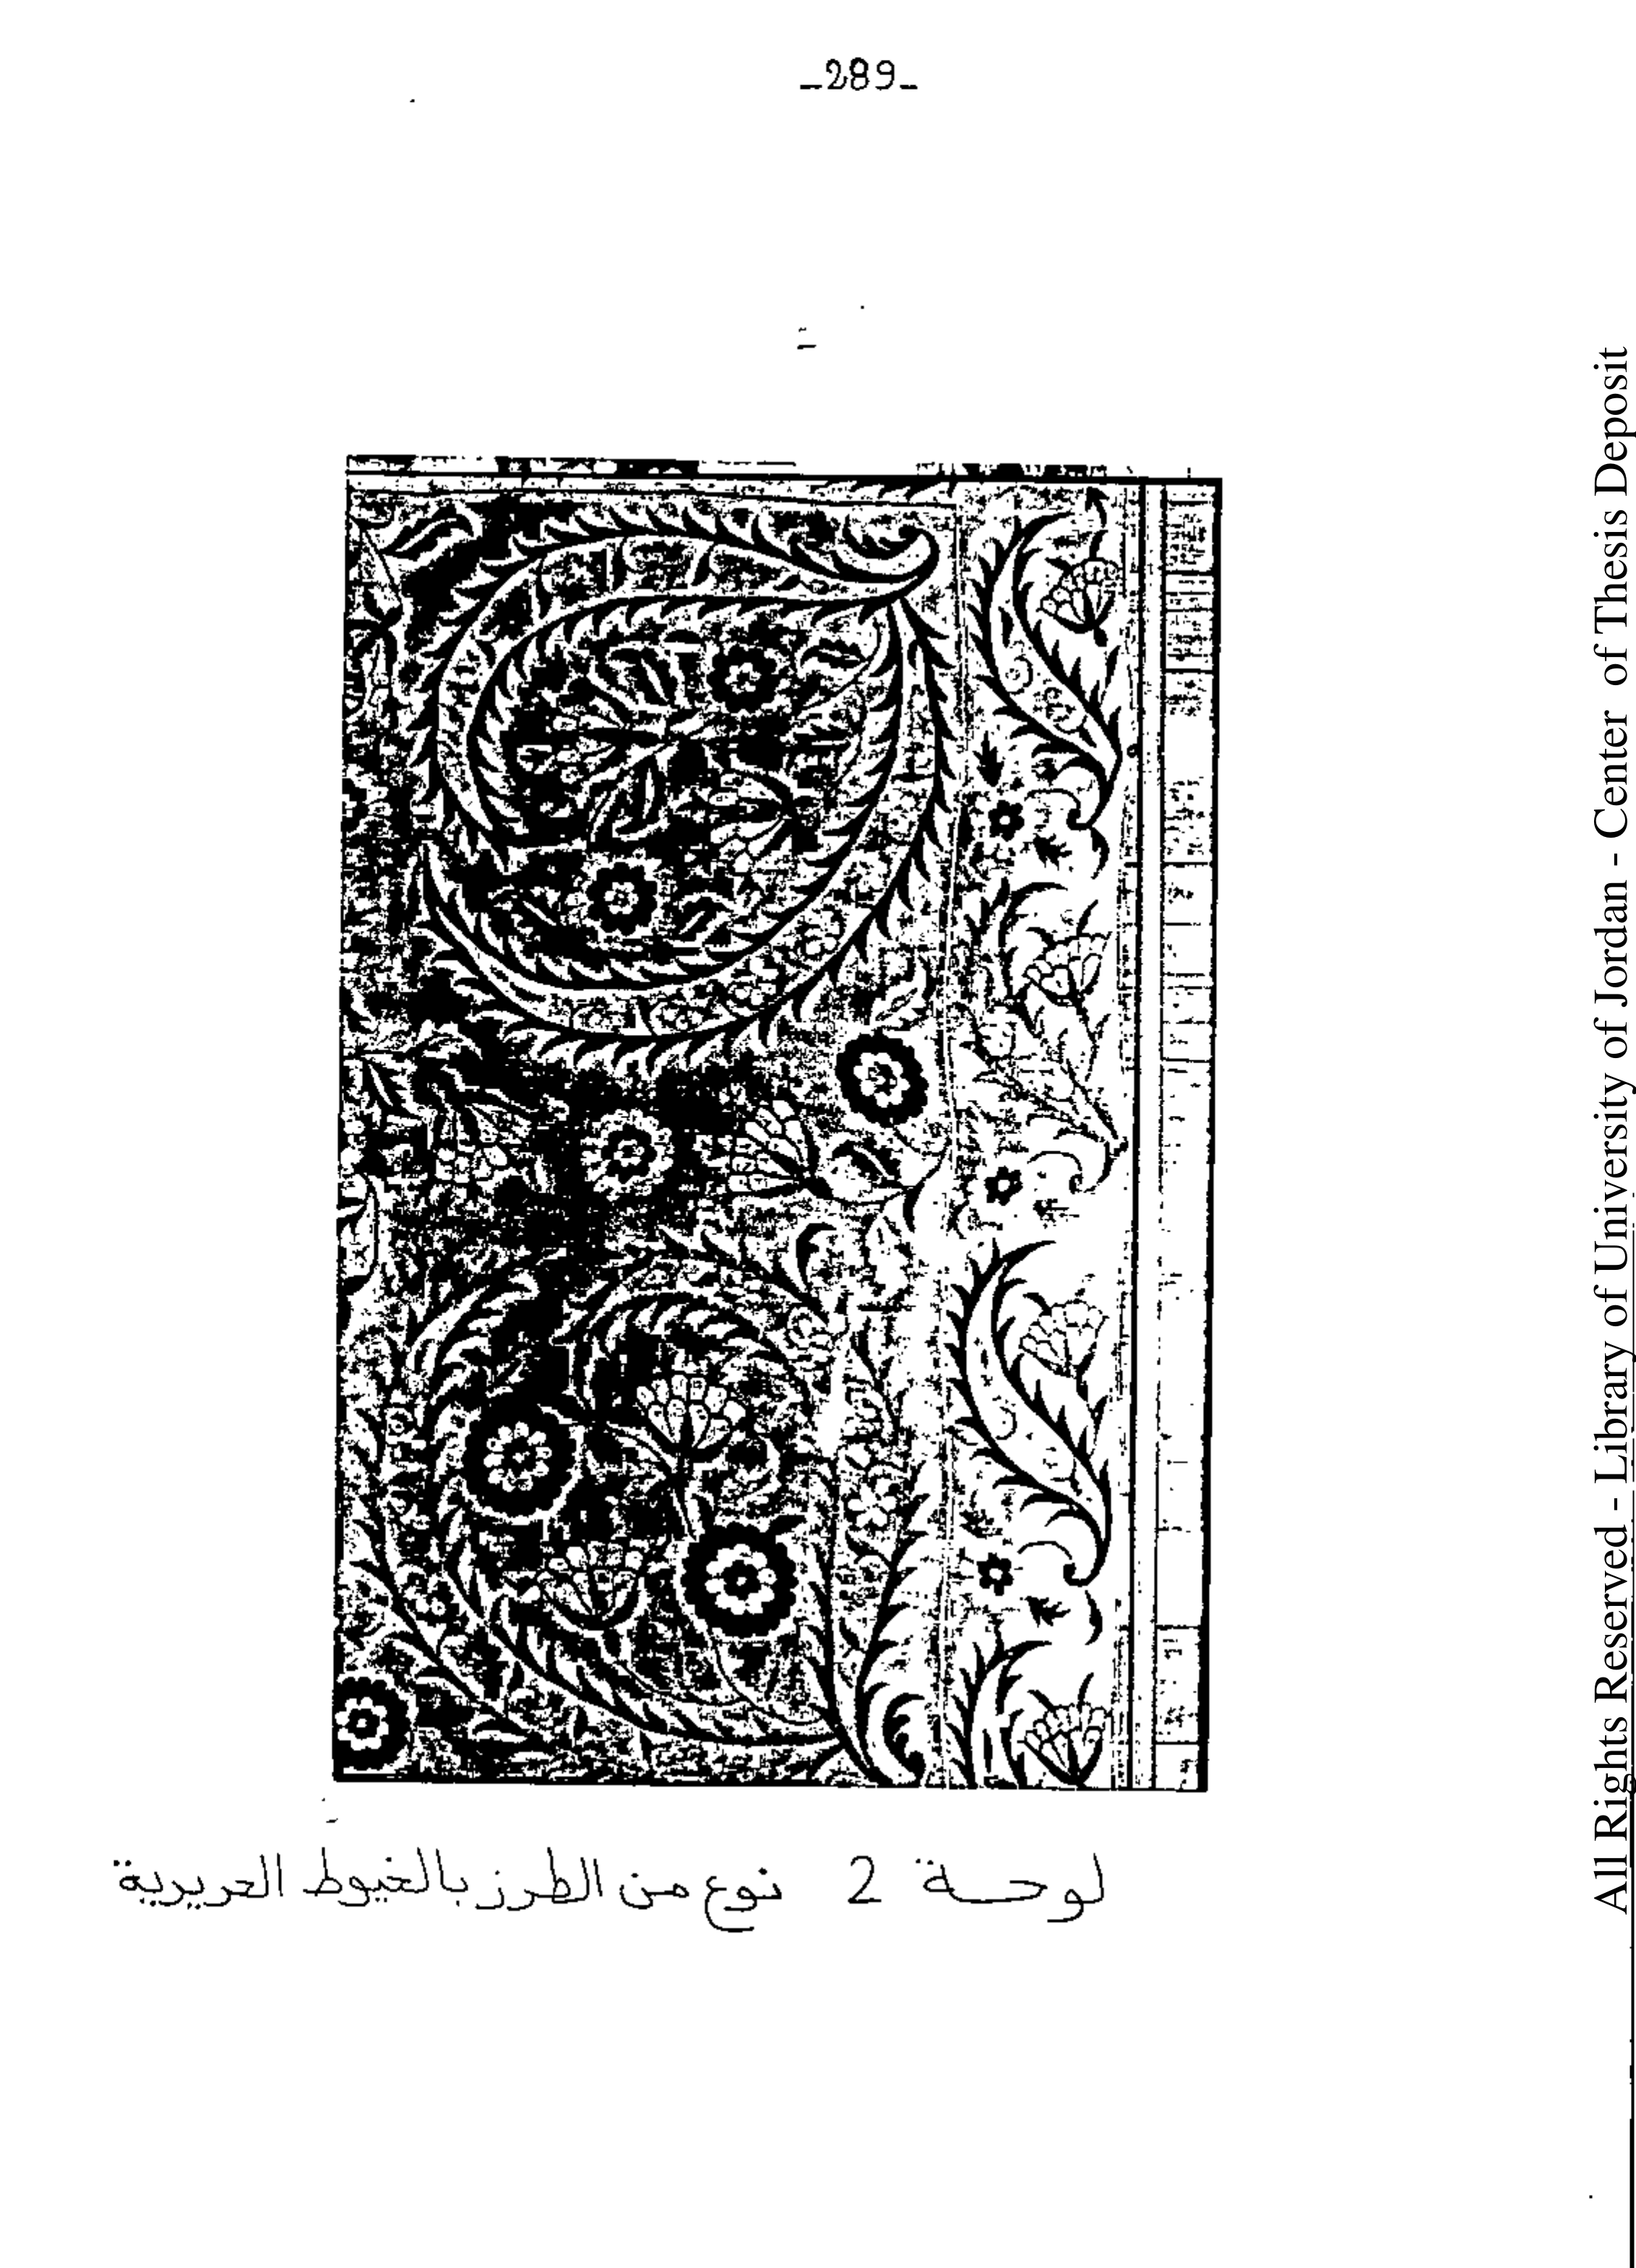 -289-
لوحة 2 نوع من الطرز بالخيوط الحريرية
All Rights Reserved - Library of University of Jordan - Center of Thesis Deposit